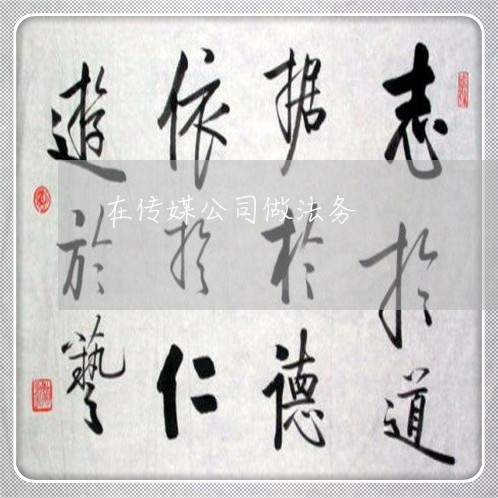 志於道
据於德
依於仁
遊於藝
在传媒公司做法务